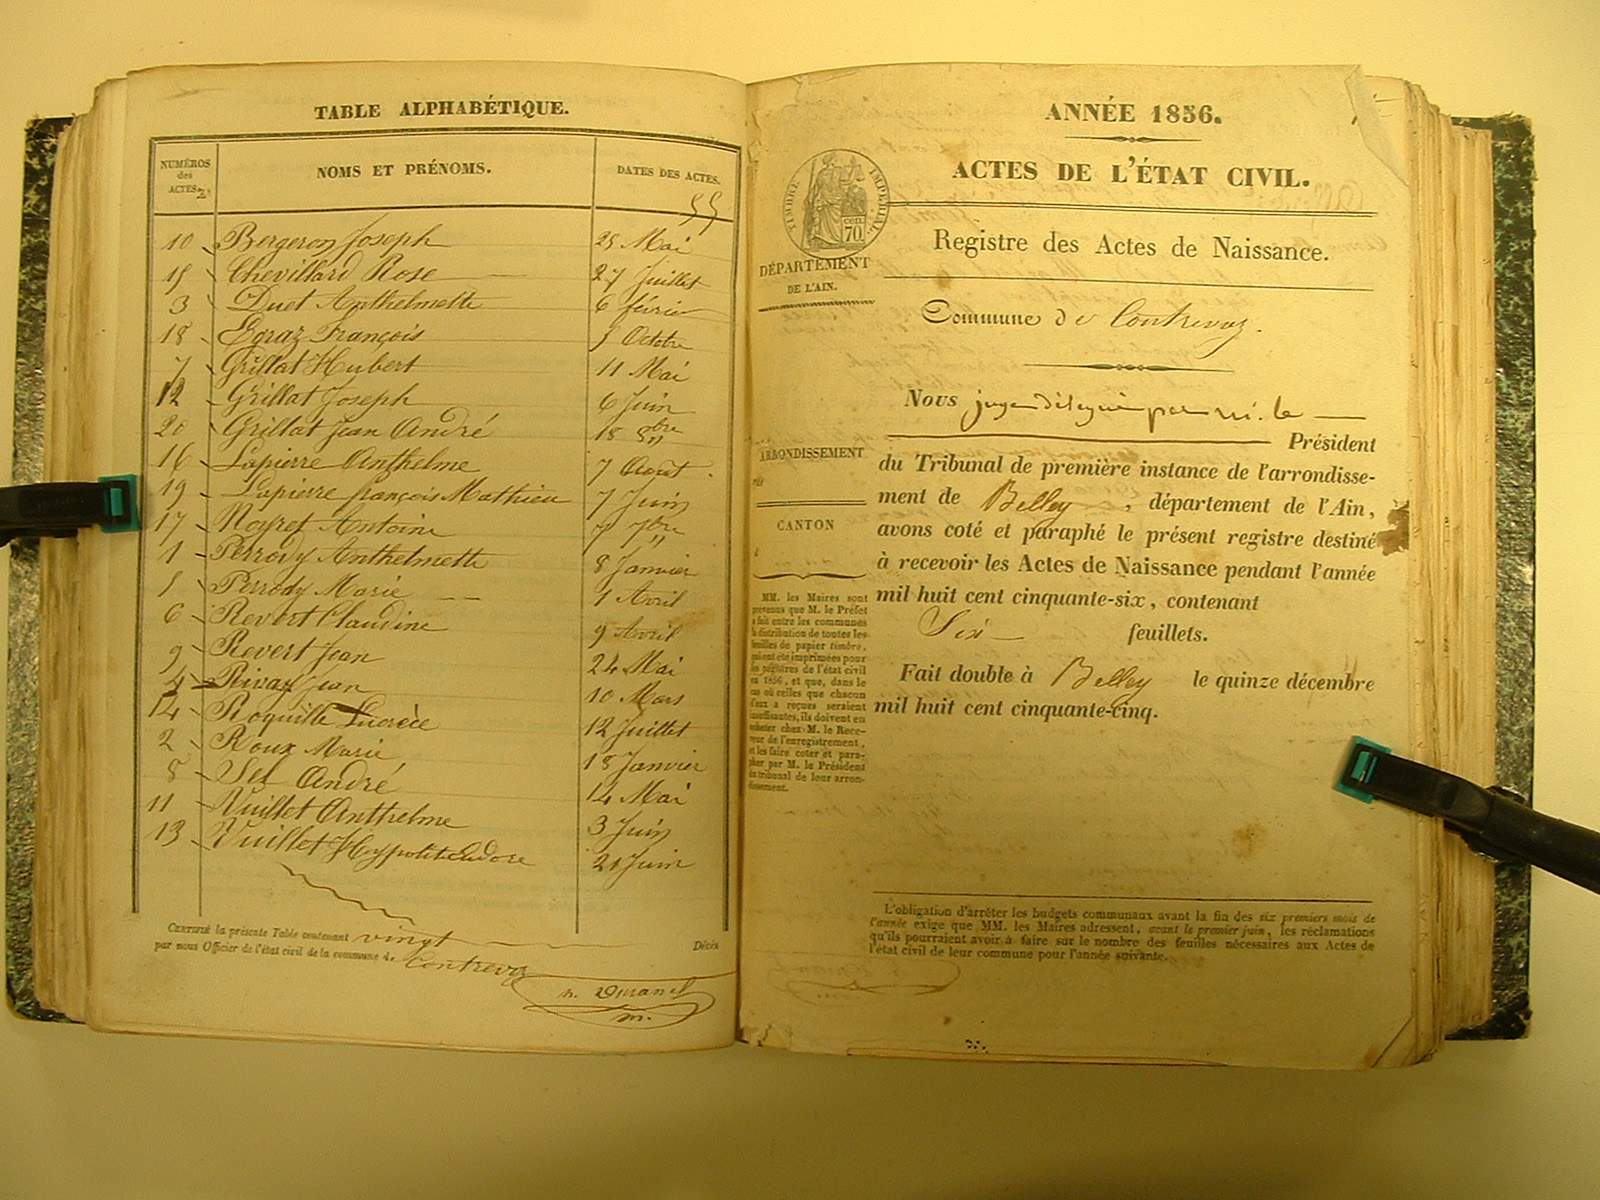 TABLE ALPHABÉTIQUE.
NUMÉROS des ACTES. NOMS ET PRÉNOMS. DATES DES ACTES.
55
10 Bergeron Joseph 25 Mai
15 Chevillard Rose 27 Juillet
3 Duet Anthelmette 6 février
18 Egraz François 5 Octobre
7 Grillat Hubert 11 Mai
12 Grillat Joseph 6 Juin
20 Grillat Jean André 18 8bre
16 Lapierre Anthelme 7 Août
19 Lapierre françois Mathieu 7 Juin
17 Noyret Antoine 7 7bre
1 Perrody Anthelmette 8 Janvier
5 Perrody Marie 1 Avril
6 Revert Claudine 9 Avril
9 Revert Jean 24 Mai
4 Rivay Jean 10 Mars
14 Roquille Lucrèce 12 Juillet
2 Roux Marie 18 Janvier
8 Sel André 14 Mai
11 Vuillet Anthelme 3 Juin
13 Vuillet Hyppolite 21 Juin
CERTIFIÉ la présente Table contenant vingt Décès
par nous Officier de l'état civil de la commune d. Contrevoz
m.
ANNÉE 1856.
ACTES DE L'ÉTAT CIVIL.
TIMBRE IMPÉRIAL.
cen. 70.
Registre des Actes de Naissance.
DÉPARTEMENT
DE L'AIN.
Commune de Contrevoz.
Nous juge délégué par m. le
Président
ARRONDISSEMENT
du Tribunal de première instance de l'arrondisse-
ment de Belley, département de l'Ain,
CANTON
avons coté et paraphé le présent registre destiné
à recevoir les Actes de Naissance pendant l'année
mil huit cent cinquante-six, contenant
Six feuillets.
Fait double à Belley le quinze décembre
mil huit cent cinquante-cinq.
MM. les Maires sont
prévenus que M. le Préfet
a fait entre les communes
la distribution de toutes les
feuilles de papier timbre,
qui ont été imprimées pour
les registres de l'état civil
en 1856, et que, dans le
cas où celles que chacun
d'eux a reçues seraient
insuffisantes, ils doivent en
acheter chez M. le Rece-
veur de l'enregistrement,
et les faire coter et para-
pher par M. le Président
du tribunal de leur arron-
dissement.
L'obligation d'arrêter les budgets communaux avant la fin des six premiers mois de
l'année exige que MM. les Maires adressent, avant le premier juin, les réclamations
qu'ils pourraient avoir à faire sur le nombre des feuilles nécessaires aux Actes de
l'état civil de leur commune pour l'année suivante.